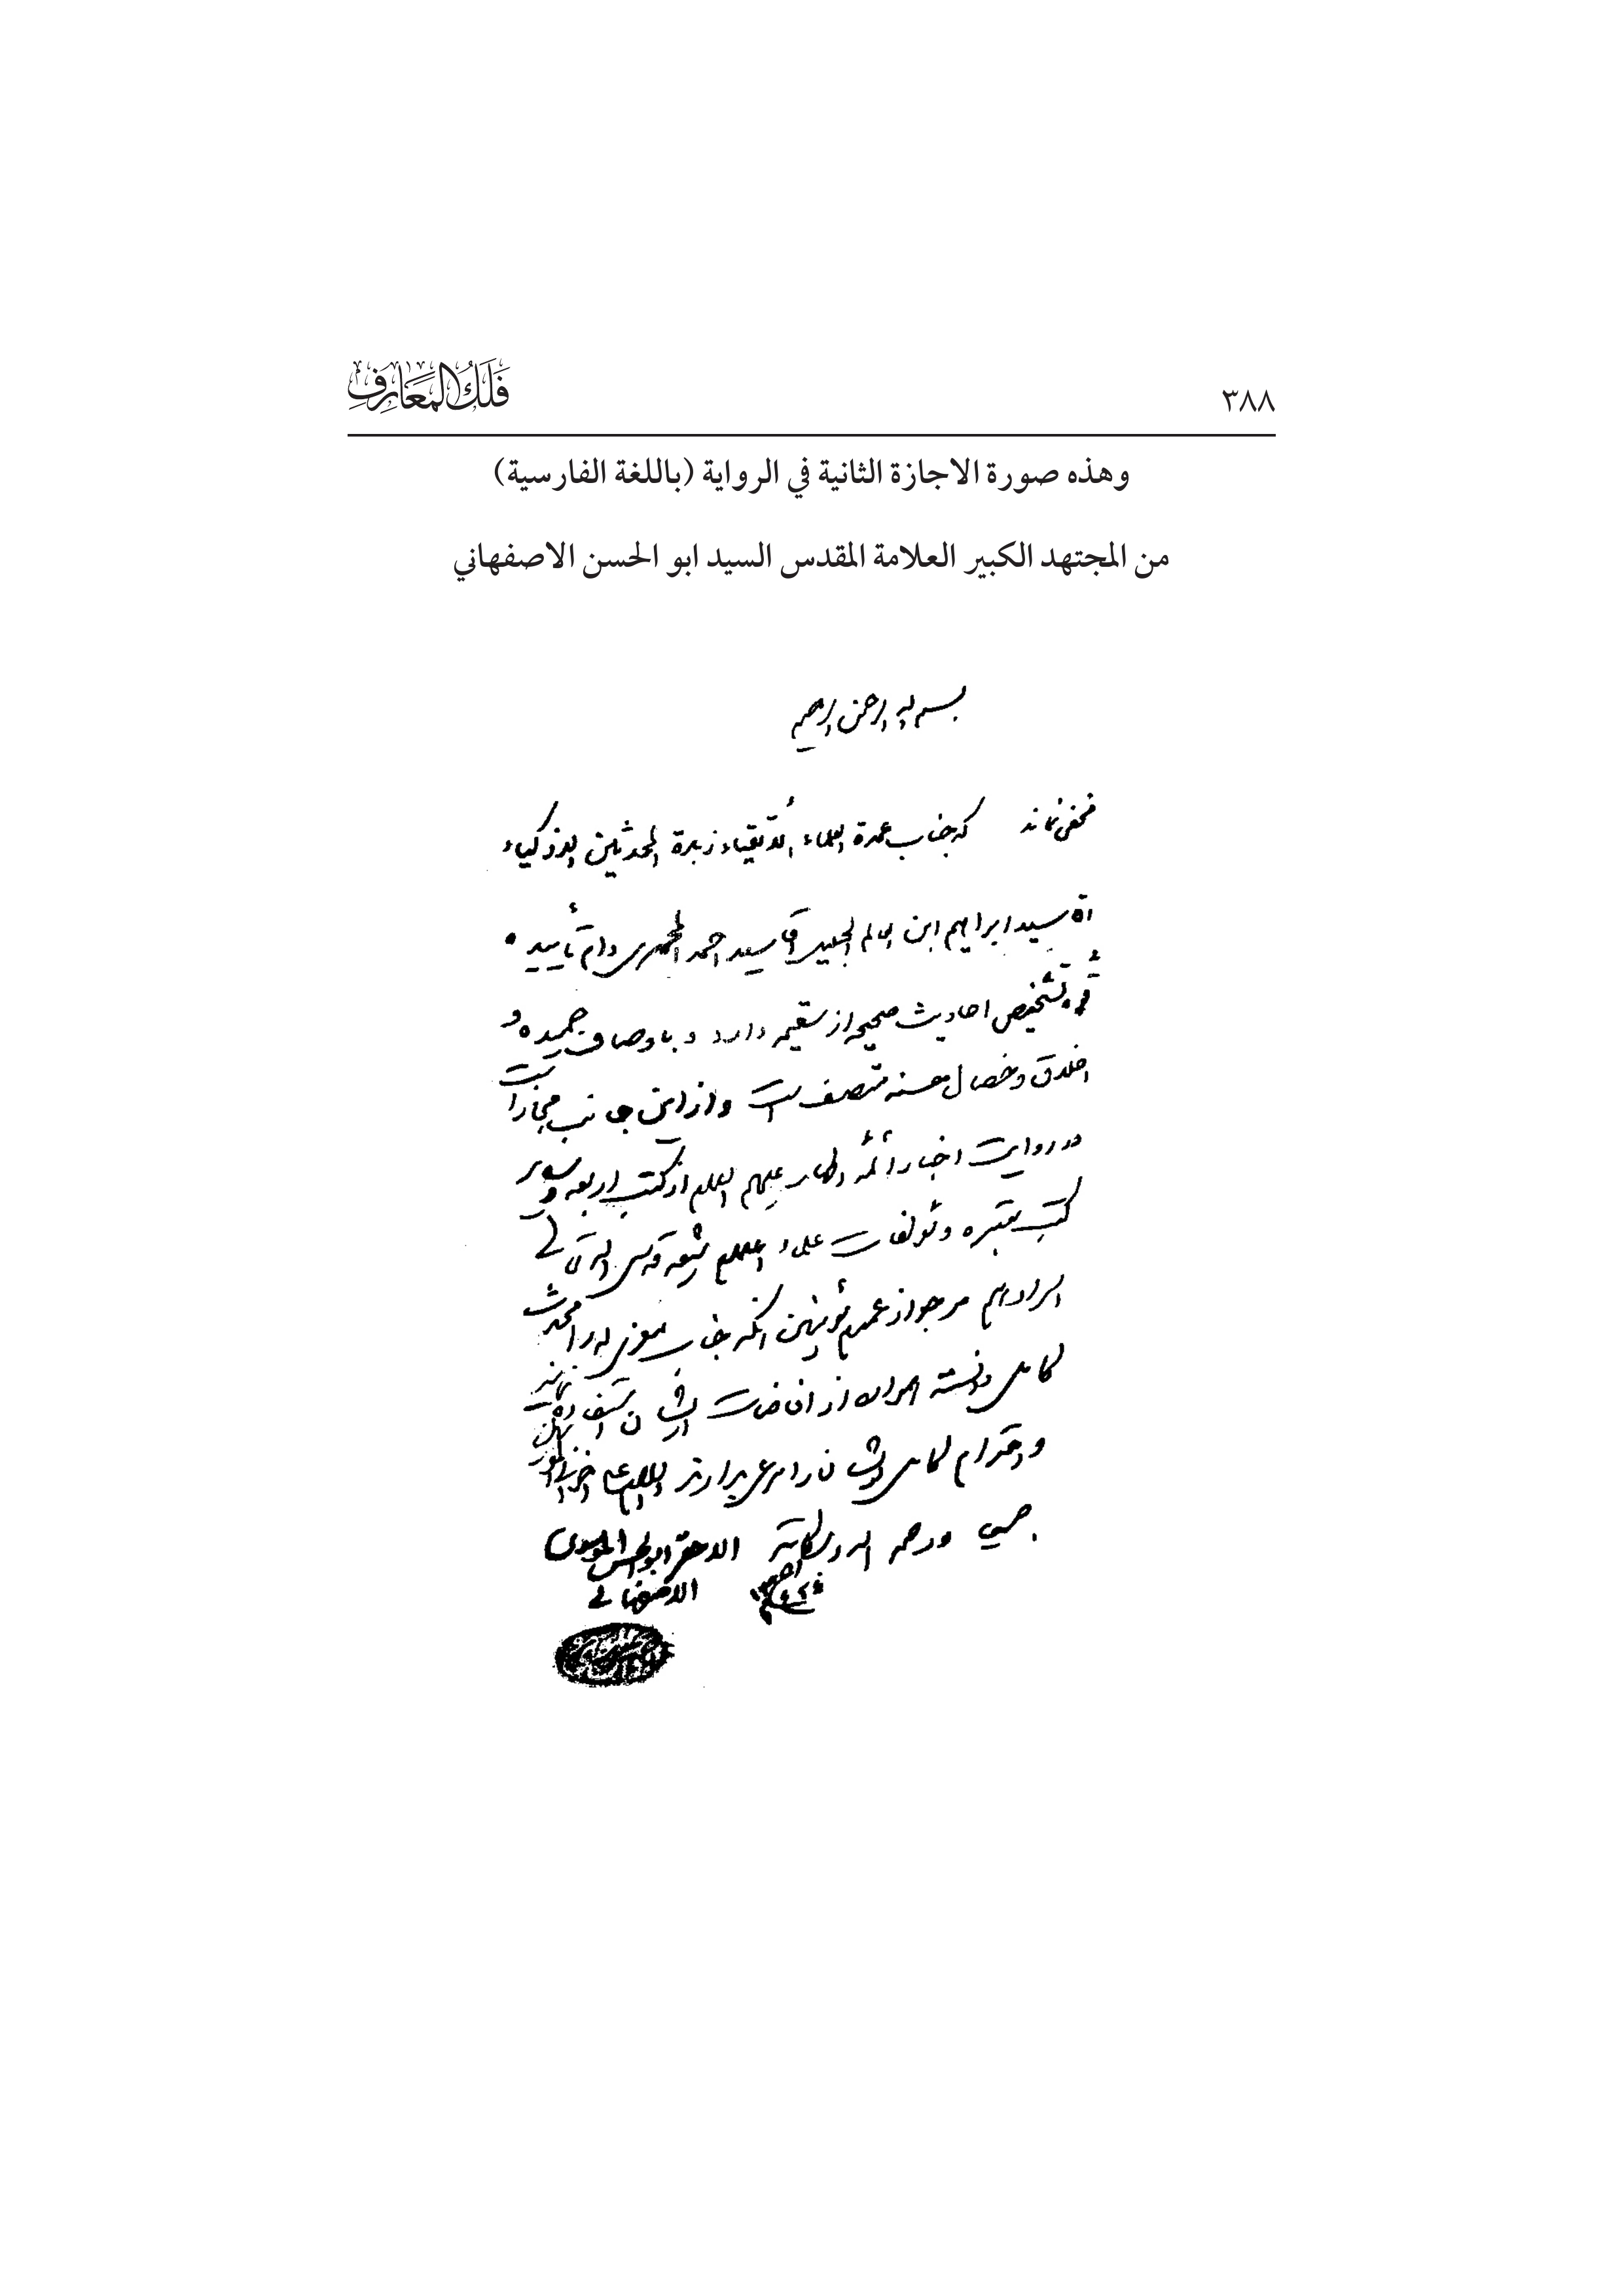 ٣٨٨
فَلَكُ المَعَارِفِ
وهذه صورة الاجازة الثانية في الرواية (باللغة الفارسية)
من المجتهد الكبير العلامة المقدس السيد ابو الحسن الاصفهاني
بسم الله الرحمن الرحيم
مخفی نماند که جناب عمدة العلماء الأتقیاء زبدة المحدثین الاذکیاء
سید ابراهیم ابن العالم الجلیل اقا سید احمد دام تأییده
قوه تشخیص احادیث صحیحه از سقیمه دارد و باوصاف حمیده و
اخلاق و خصال حسنه متصف است و از این جانب مجاز است
در روایت اخبار ائمه اطهار علیهم السلام از کتب اربعه و سایر
کتب معتبره و مؤلفات علماء اعلام شیعه قدس الله تعالی
اسرارهم مرجو از عموم مؤمنین انکه جناب معزی له را محدث
کامل دانسته از افاضات ایشان
و احترام کامل ایشان را مرعی بدارند والسلام علی
ورحمة الله وبرکاته الاحقر ابوالحسن الموسوی
الاصفهانی